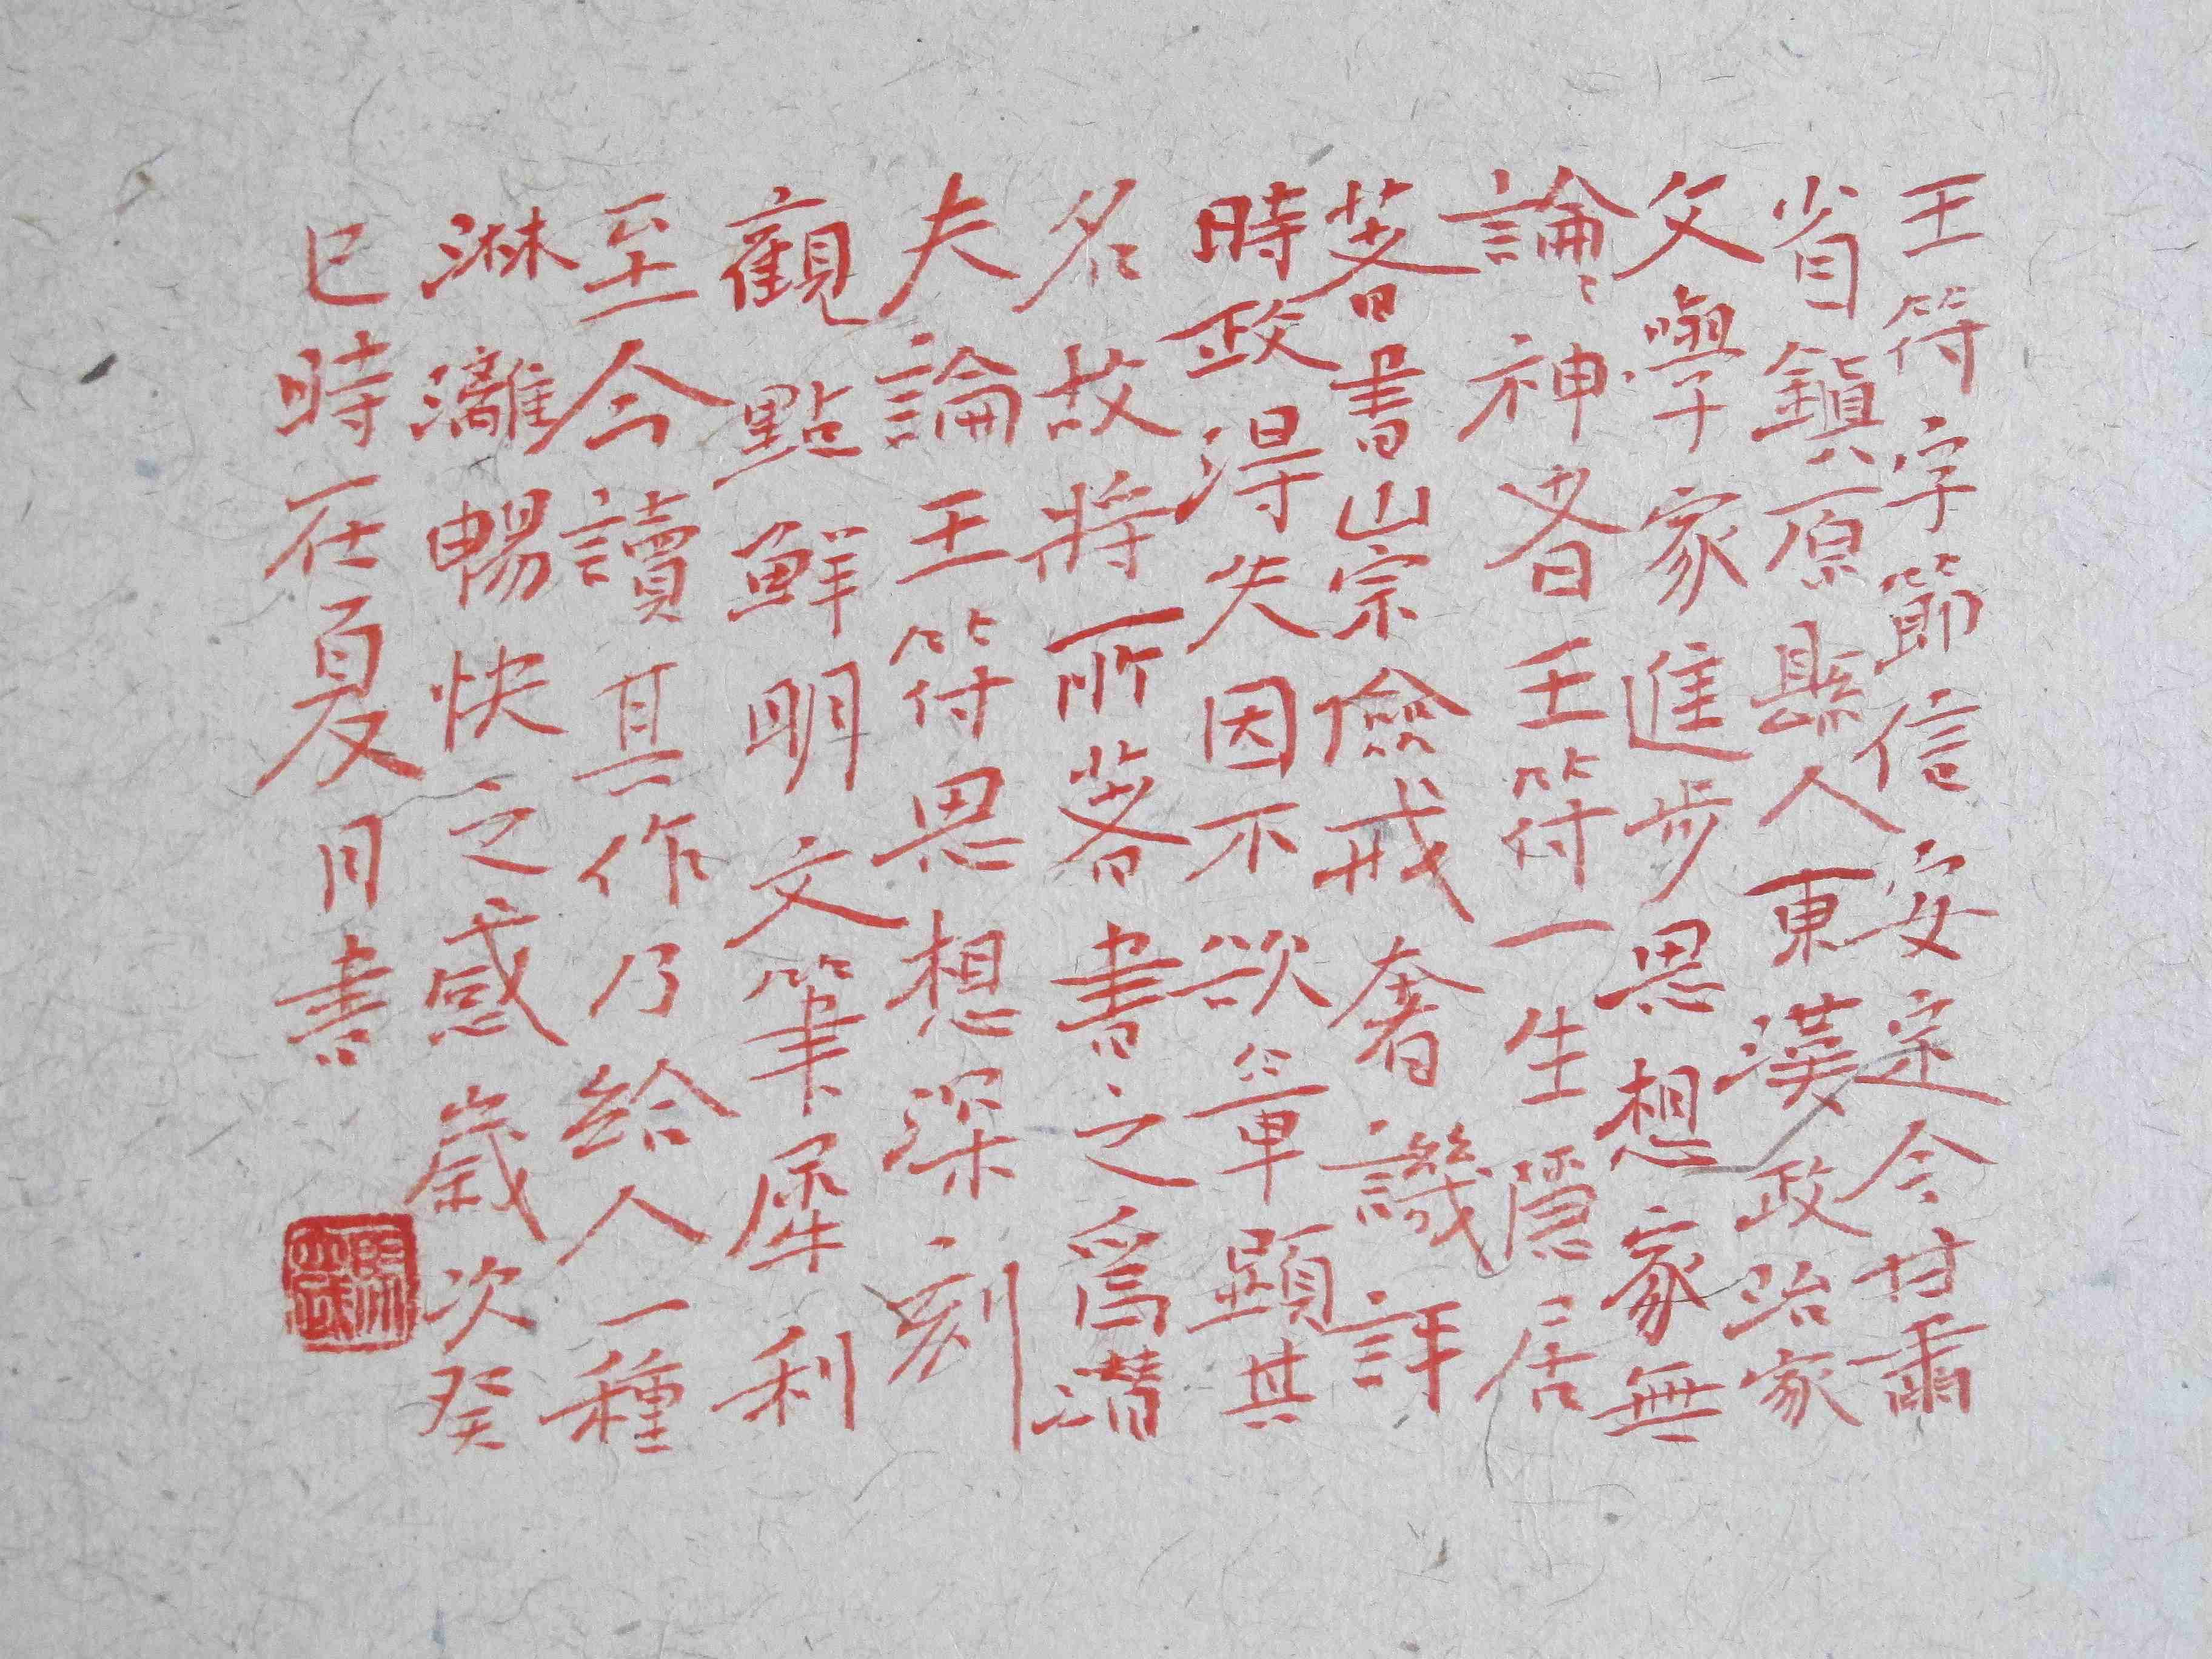 王符字節信安定今甘肅
省鎮原縣人東漢政治家
文學家進步思想家無
論神者王符王符一生隱居
著書山宗儉戒奢譏評
時政得失因不欲章顯其
名故將所著書之爲潛
夫論王符思想深刻
觀點鮮明文筆犀利
至今讀其作乃給人一種
淋灕暢快之感歲次癸
巳時在夏月書